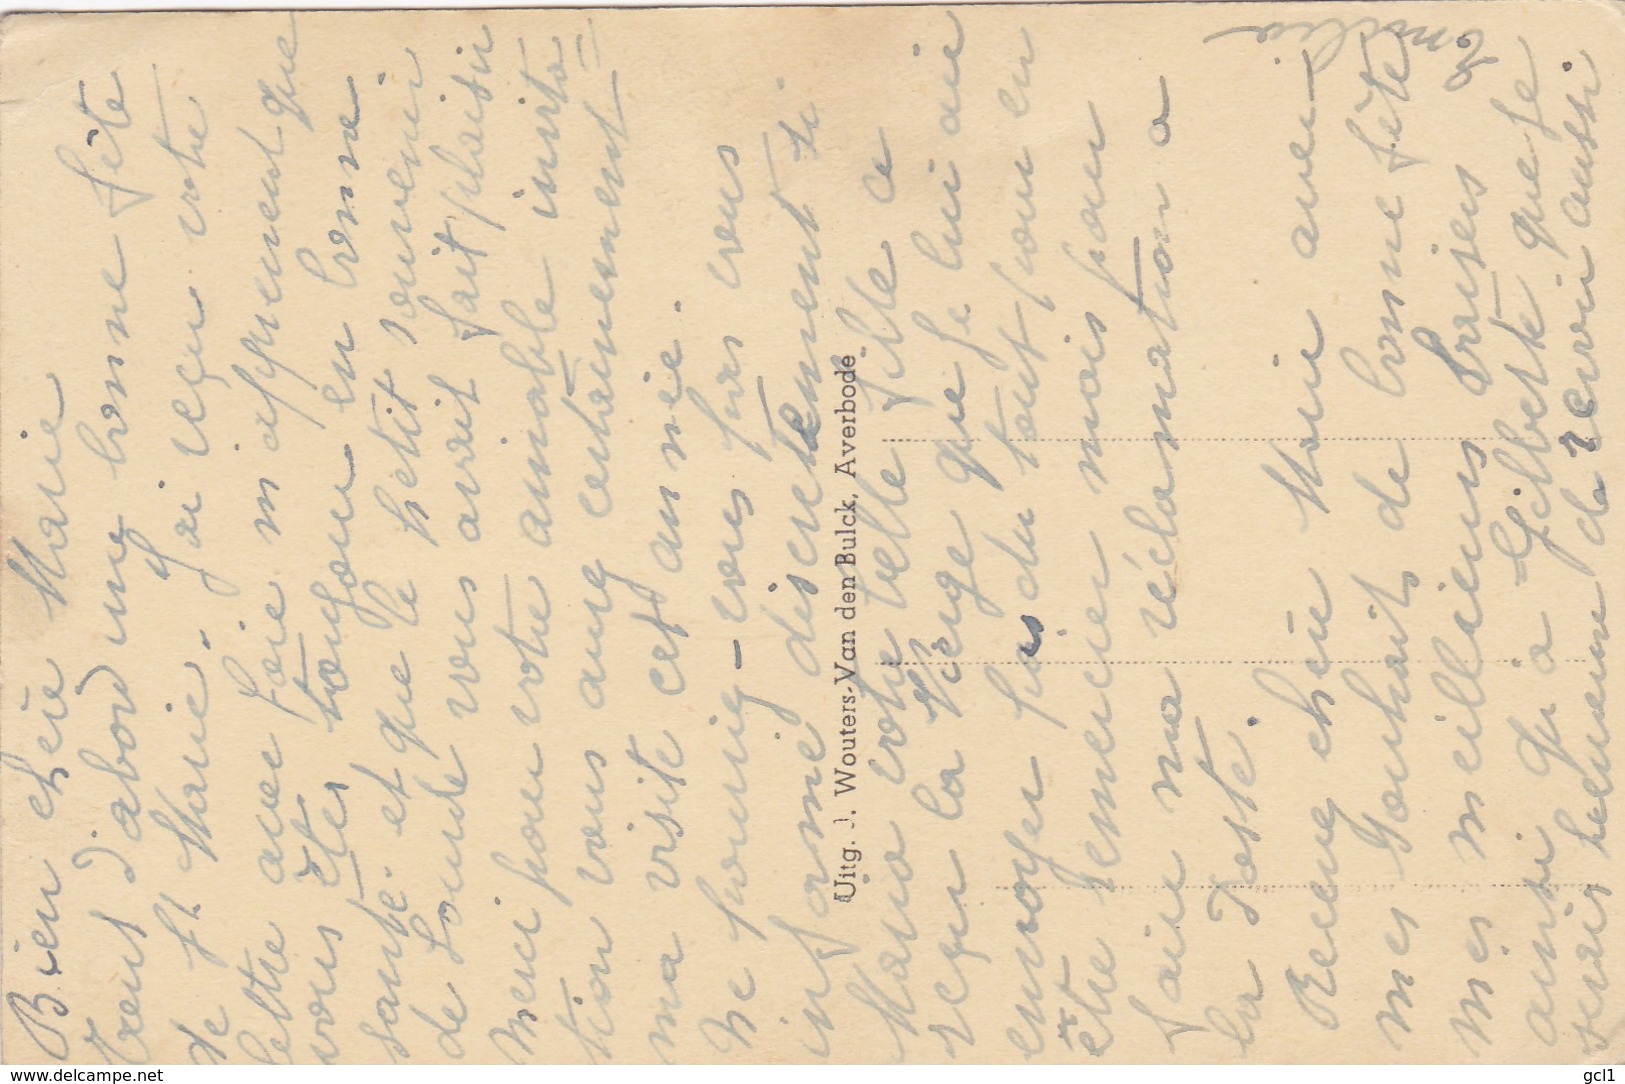 Bien chère Marie
Tout d'abord une bonne fête
de St Marie. J'ai reçu votre
lettre avec joie m'apprenent que
vous êtes toujour en bonne
santé et que le petit souvenir
de Lourde vous avait fait plaisir
merci pour votre aimable invita=
tion vous aurez certainement
ma visite cet année.
Ne pouriez-vous pas vous
informé discretement si
Maria votre belle fille a
reçu la Vierge que je lui ai
envoyer pas du tout pour en
être remercier mais pour
faire ma réclamation a
la Poste.
Recevez chère Marie avec
mes souhait de bonne fête
mes meilleurs Baisers
ainsi qu'a Gilberte que je
serais heureuse de revoir aussi
Emilia
Uitg. J. Wouters-Van den Bulck, Averbode
www.delcampe.net
gcl1